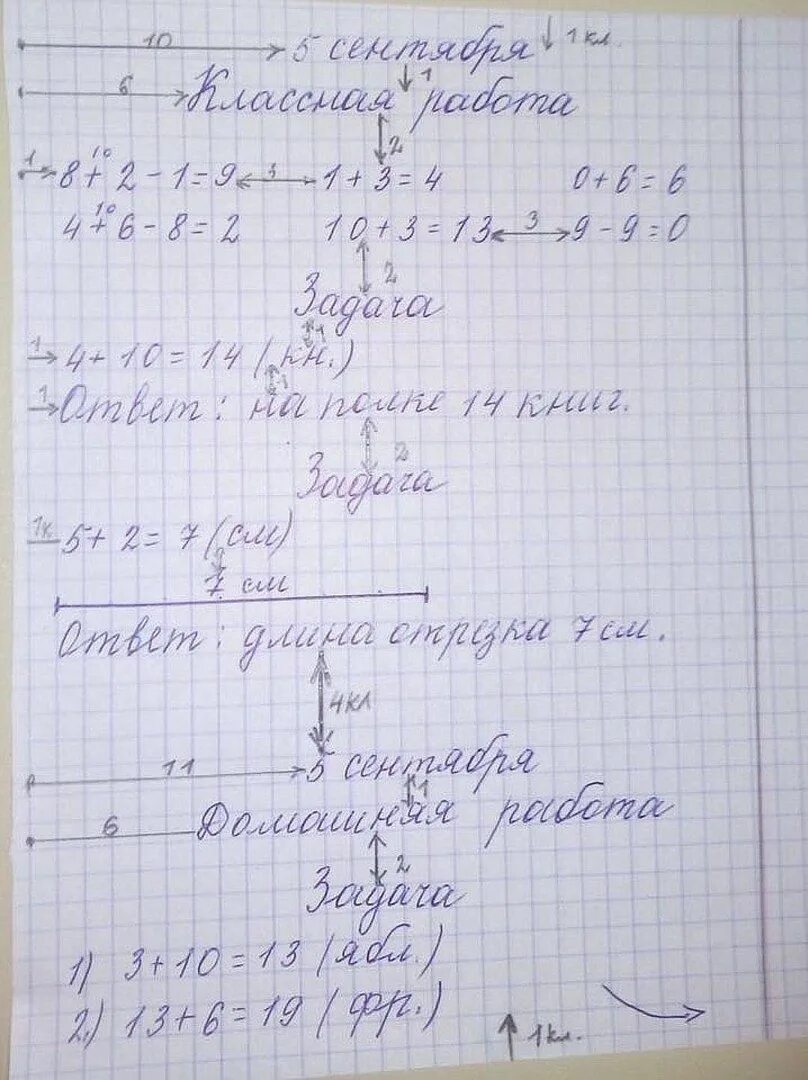 10 5 сентября 1 кл.
6 Классная 1 работа
2
10
1 8 + 2 - 1 = 9 3 1 + 3 = 4 0 + 6 = 6
10
4 + 6 - 8 = 2 10 + 3 = 13 3 9 - 9 = 0
2
Задача
1
1 4 + 10 = 14 (кн.)
1
1 Ответ: на полке 14 книг.
2
Задача
1к 5 + 2 = 7 (см)
7 см
Ответ: длина отрезка 7 см.
4 кл
11 5 сентября
1
6 Домашняя работа
2
Задача
1) 3 + 10 = 13 (ябл.)
2.) 13 + 6 = 19 (фр.)
1 кл.